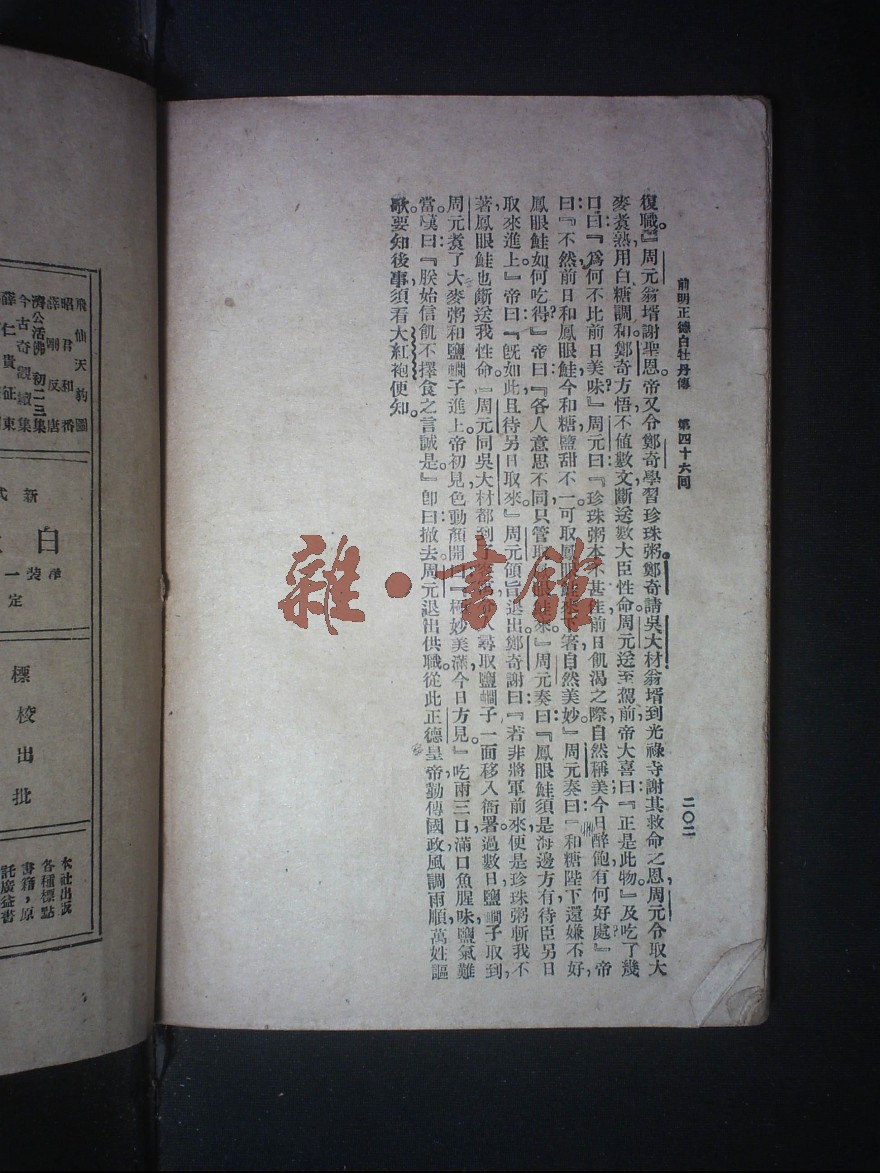 前明正德白牡丹傳　第四十六回　二〇二
復職。』周元翁壻謝聖恩。帝又令鄭奇學習珍珠粥。鄭奇請吳大材翁壻到光祿寺謝其救命之恩。周元令取大
麥煮熟，用白糖調和，鄭奇方悟不値數文，斷送數大臣性命。周元送至駕前，帝大喜曰：『正是此物。』及吃了幾
口，曰：『爲何不比前日美味？』周元曰：『珍珠粥本不甚佳，前日飢渴之際，自然稱美；今日醉飽，有何好處？』帝
曰：『不然，前日和鳳眼鮭，今和糖，鹽甜不一，可取鳳眼鮭來下箸，自然美妙。』周元奏曰：『和糖陛下還嫌不好，
鳳眼鮭如何吃得？』帝曰：『各人意思不同，只管取鳳眼鮭來。』周元奏曰：『鳳眼鮭須是海邊方有，待臣另日
取來進上。』帝曰：『旣如此，且待另日取來。』周元領旨退出。鄭奇謝曰：『若非將軍前來，便是珍珠粥斬我，不
著鳳眼鮭也斷送我性命。』周元同吳大材都到 人尋取鹽 子，一面移入衙署。過數日，鹽 子取到，
周元煑了大麥粥和鹽 子進上。帝初見色動顏開，曰：『極妙美滿，今日方見。』吃兩三口，滿口魚腥味，鹽氣難
當，嘆曰：『朕始信飢不擇食之言誠是。』卽曰撤去。周元退出供職。從此正德皇帝勤傳國政，風調雨順，萬姓謳
歌。要知後事，須看大紅袍便知。
飛仙天豹圖
昭君和番
薛剛反唐
濟公活佛初二三集
今古奇觀續集
薛仁貴征東
新式
白
淨裝一
定
標
校
出
批
本社出版
各種標點
書籍，原
託廣益書
雜·書館